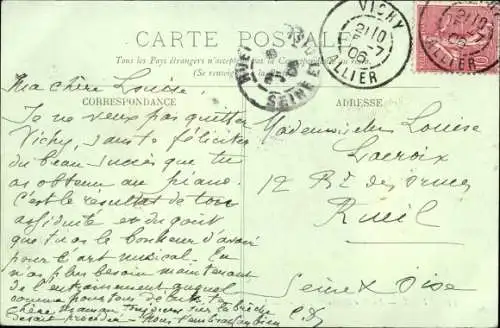 CARTE POSTALE
Tous les Pays étrangers n'acceptent pas la Correspondance au
(Se renseigner à la
CORRESPONDANCE
ADRESSE
VICHY
21 10
5-7
06
ALLIER
RUEIL
SEINE ET OISE
Ma chère Louise,
Je ne veux pas quitter
Vichy, sans te féliciter
du beau succès que tu
as obtenu au piano.
C'est le résultat de ton
assiduité et du goût
que tu as le bonheur d'avoir
pour l'art musical. Tu
n'as plus besoin maintenant
de l'entraînement auquel
comme
chère maman, toujours sur la brèche
devait procéder - Nous t'embrassons bien
Mademoiselle Louise
Lacroix
12 Bd de
Rueil
Seine & Oise